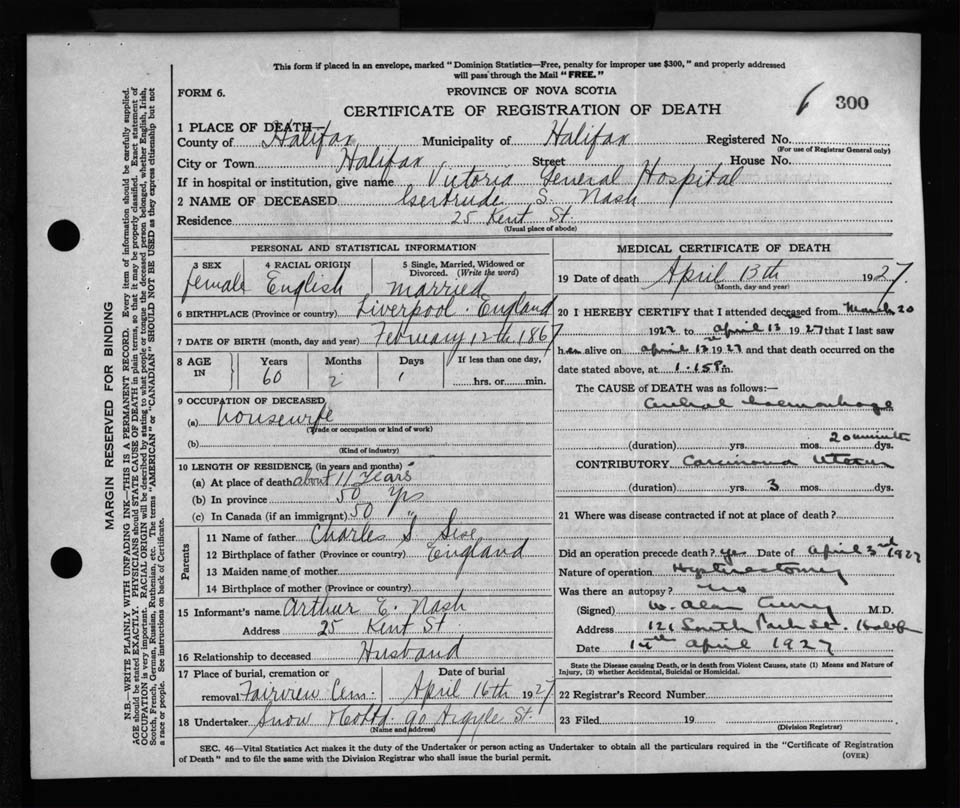 This form if placed in an envelope, marked "Dominion Statistics—Free, penalty for improper use $300," and properly addressed
will pass through the Mail "FREE."
FORM 6.
PROVINCE OF NOVA SCOTIA
CERTIFICATE OF REGISTRATION OF DEATH
6 300
1 PLACE OF DEATH—
County of Halifax Municipality of Halifax Registered No.
(For use of Registrar General only)
City or Town Halifax Street House No.
If in hospital or institution, give name Victoria General Hospital
2 NAME OF DECEASED Gertrude S. Nash
Residence 25 Kent St.
(Usual place of abode)
PERSONAL AND STATISTICAL INFORMATION
3 SEX 4 RACIAL ORIGIN 5 Single, Married, Widowed or
Divorced. (Write the word)
female English married
6 BIRTHPLACE (Province or country) Liverpool. England
7 DATE OF BIRTH (month, day and year) February 12th 1867
8 AGE IN Years Months Days If less than one day,
60 2 1 hrs. or min.
9 OCCUPATION OF DECEASED
(a) housewife
(Trade or occupation or kind of work)
(b)
(Kind of industry)
10 LENGTH OF RESIDENCE (in years and months)
(a) At place of death about 11 years
(b) In province 50 yrs
(c) In Canada (if an immigrant) 50 "
Parents
11 Name of father Charles S. Sise
12 Birthplace of father (Province or country) England
13 Maiden name of mother
14 Birthplace of mother (Province or country)
15 Informant's name Arthur E. Nash
Address 25 Kent St
16 Relationship to deceased Husband
17 Place of burial, cremation or Date of burial
removal Fairview Cem. April 16th 1927
18 Undertaker Snow & Co Ltd. 90 Argyle St.
(Name and address)
MEDICAL CERTIFICATE OF DEATH
19 Date of death April 13th 1927.
(Month, day and year)
20 I HEREBY CERTIFY that I attended deceased from March 20
1927 to April 13th 1927 that I last saw
her alive on April 13th 1927 and that death occurred on the
date stated above, at 1.15 P m.
The CAUSE of DEATH was as follows:—
haemorrhage
20 minutes
(duration) yrs. mos. dys.
CONTRIBUTORY. Carcinoma Uterus
(duration) yrs. 3 mos. dys.
21 Where was disease contracted if not at place of death?
Did an operation precede death? yes Date of April 3rd 1927
Nature of operation Hysterectomy
Was there an autopsy? No
(Signed) W. Alan Curry M.D.
Address 121 South Park St. Halifax
Date 14th April 1927
State the Disease causing Death, or in death from Violent Causes, state (1) Means and Nature of
Injury, (2) whether Accidental, Suicidal or Homicidal.
22 Registrar's Record Number
23 Filed 19
(Division Registrar)
SEC. 46—Vital Statistics Act makes it the duty of the Undertaker or person acting as Undertaker to obtain all the particulars required in the "Certificate of Registration
of Death" and to file the same with the Division Registrar who shall issue the burial permit.
(OVER)
MARGIN RESERVED FOR BINDING
N.B.—WRITE PLAINLY WITH UNFADING INK—THIS IS A PERMANENT RECORD. Every item of information should be carefully supplied.
AGE should be stated EXACTLY. PHYSICIANS should STATE CAUSE OF DEATH in plain terms, so that it may be properly classified. Exact statement of
OCCUPATION is very important. RACIAL ORIGIN will be described by stating to what people or tongue the deceased person belonged, whether English, Irish,
Scotch, French, German, Russian, Ruthenian, etc. The terms "AMERICAN" or "CANADIAN" SHOULD NOT BE USED as they express citizenship but not
a race or people. See instructions on back of Certificate.